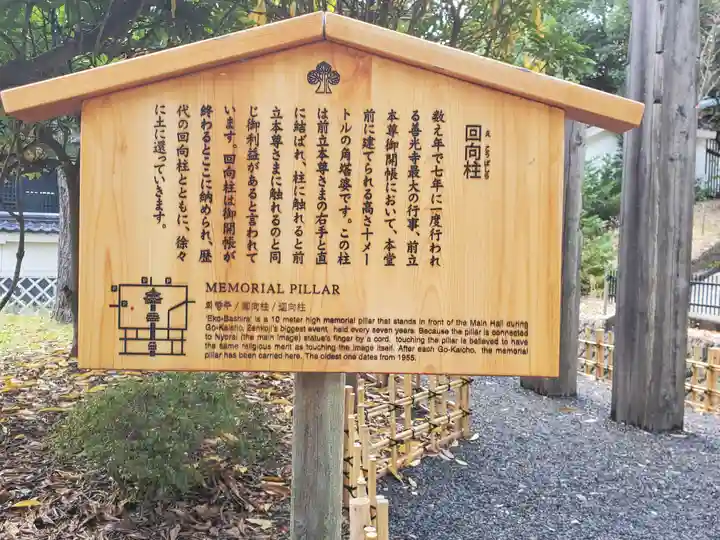 回向柱
えこうばしら
数え年で七年に一度行われ
る善光寺最大の行事、前立
本尊御開帳において、本堂
前に建てられる高さ十メー
トルの角塔婆です。この柱
は前立本尊さまの右手と直
に結ばれ、柱に触れると前
立本尊さまに触れるのと同
じ御利益があると言われて
います。回向柱は御開帳が
終わるとここに納められ、歴
代の回向柱とともに、徐々
に土に還っていきます。
MEMORIAL PILLAR
회향주 / 回向柱 / 迴向柱
'Eko-Bashira' is a 10 meter high memorial pillar that stands in front of the Main Hall during
Go-Kaicho, Zenkoji's biggest event, held every seven years. Because the pillar is connected
to Nyorai (the main image) statue's finger by a cord, touching the pillar is believed to have
the same religious merit as touching the image itself. After each Go-Kaicho, the memorial
pillar has been carried here. The oldest one dates from 1955.
P
P
P